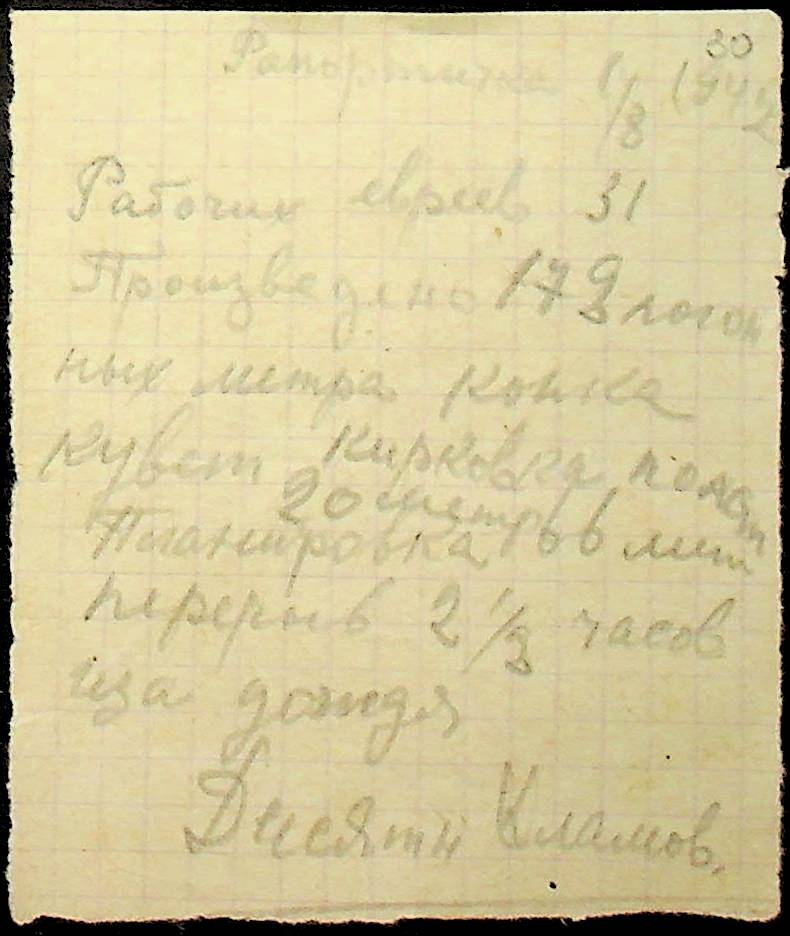 30
Рапортичка 1/8 1942
Рабочих евреев 31
Произведено 17 погон
ных метра копка
кувет Кирковка полот
20 метров
Планировка 66 мет
перерыв 2 1/2 часов
иза дождя
Десятн Кламов.